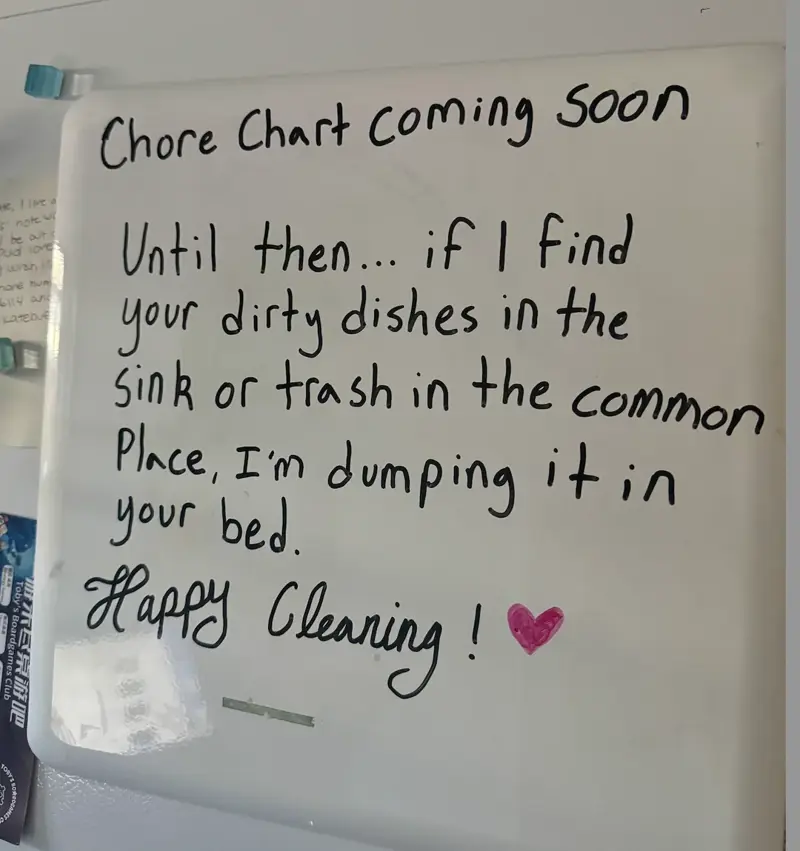 Chore Chart coming soon
Until then... if I find
your dirty dishes in the
sink or trash in the common
Place, I'm dumping it in
your bed.
Happy Cleaning!
Toby's Boardgames Club